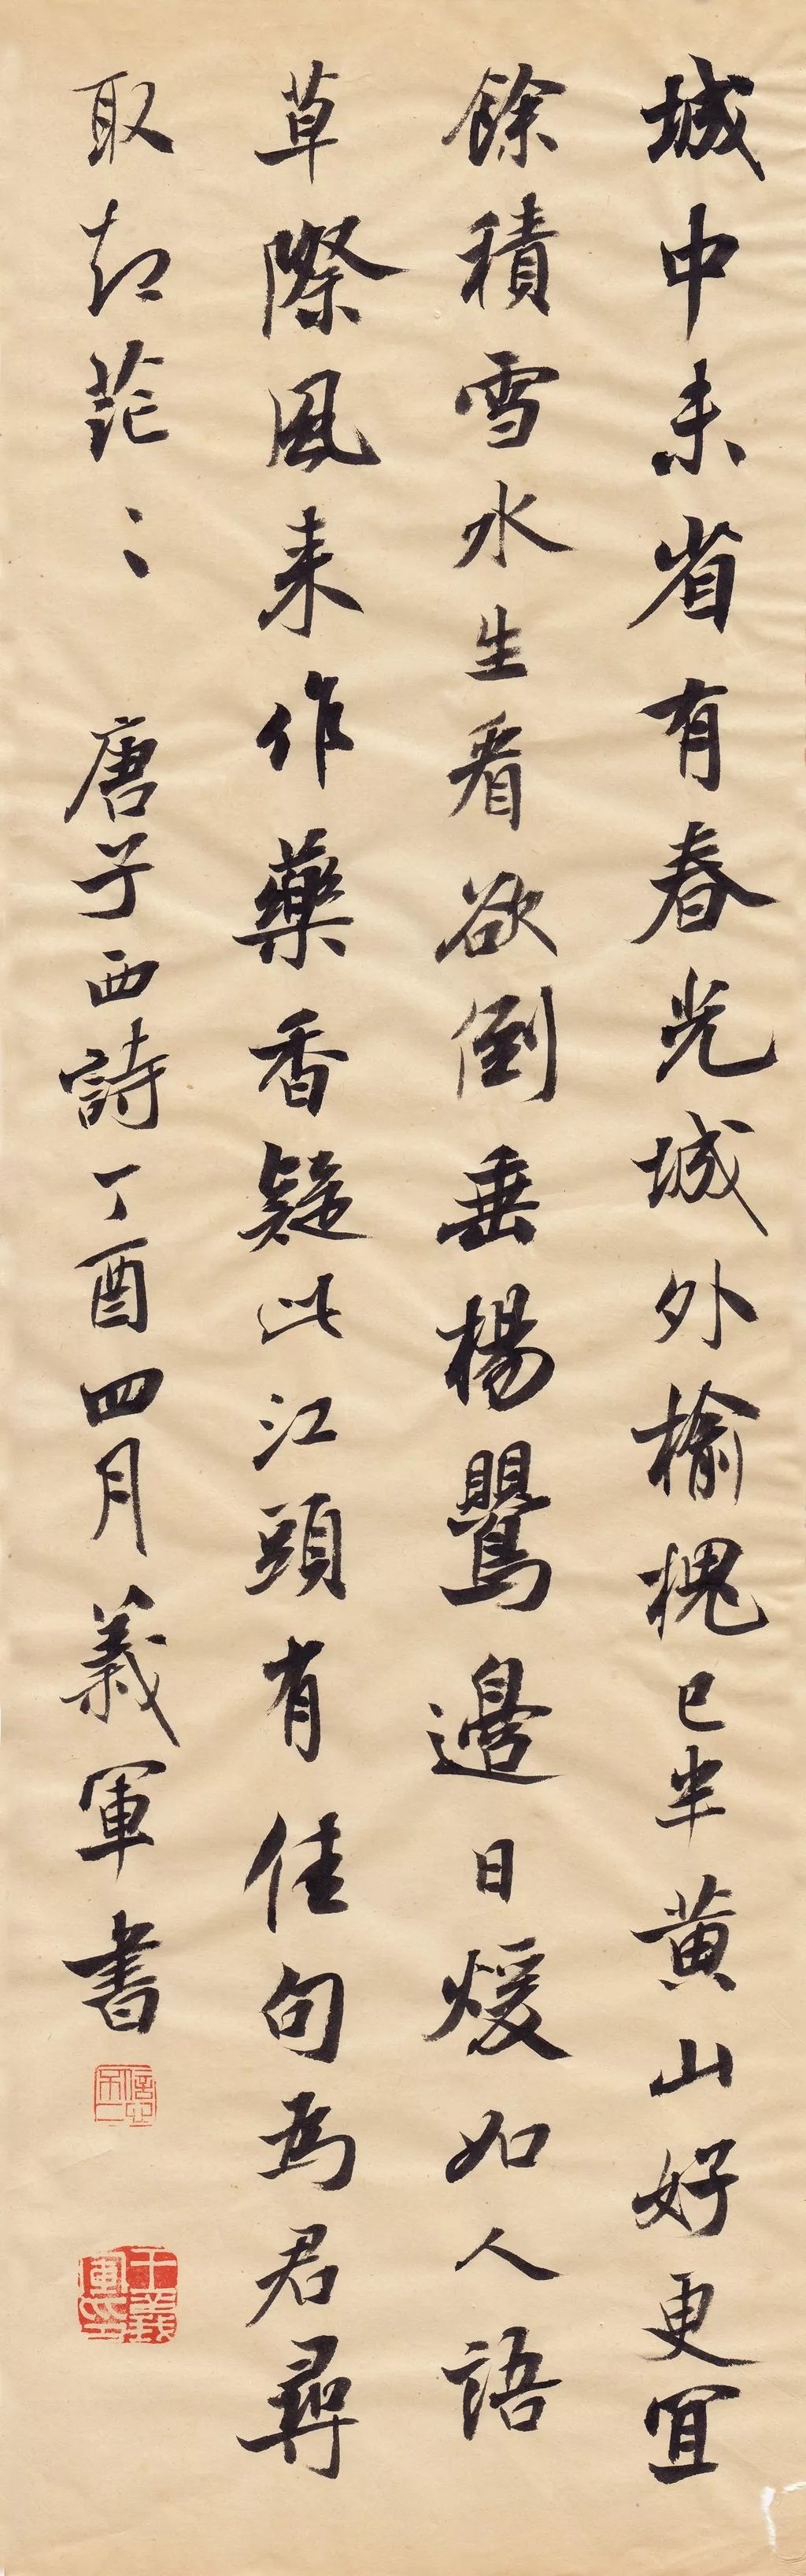 城中未省有春光城外榆槐已半黄山好更宜
餘積雪水生看欲倒垂楊鸎邊日煖如人語
草際風来作藥香疑此江頭有佳句為君尋
取却茫〻 唐子西詩丁酉四月義軍書
信心不二
王義軍印